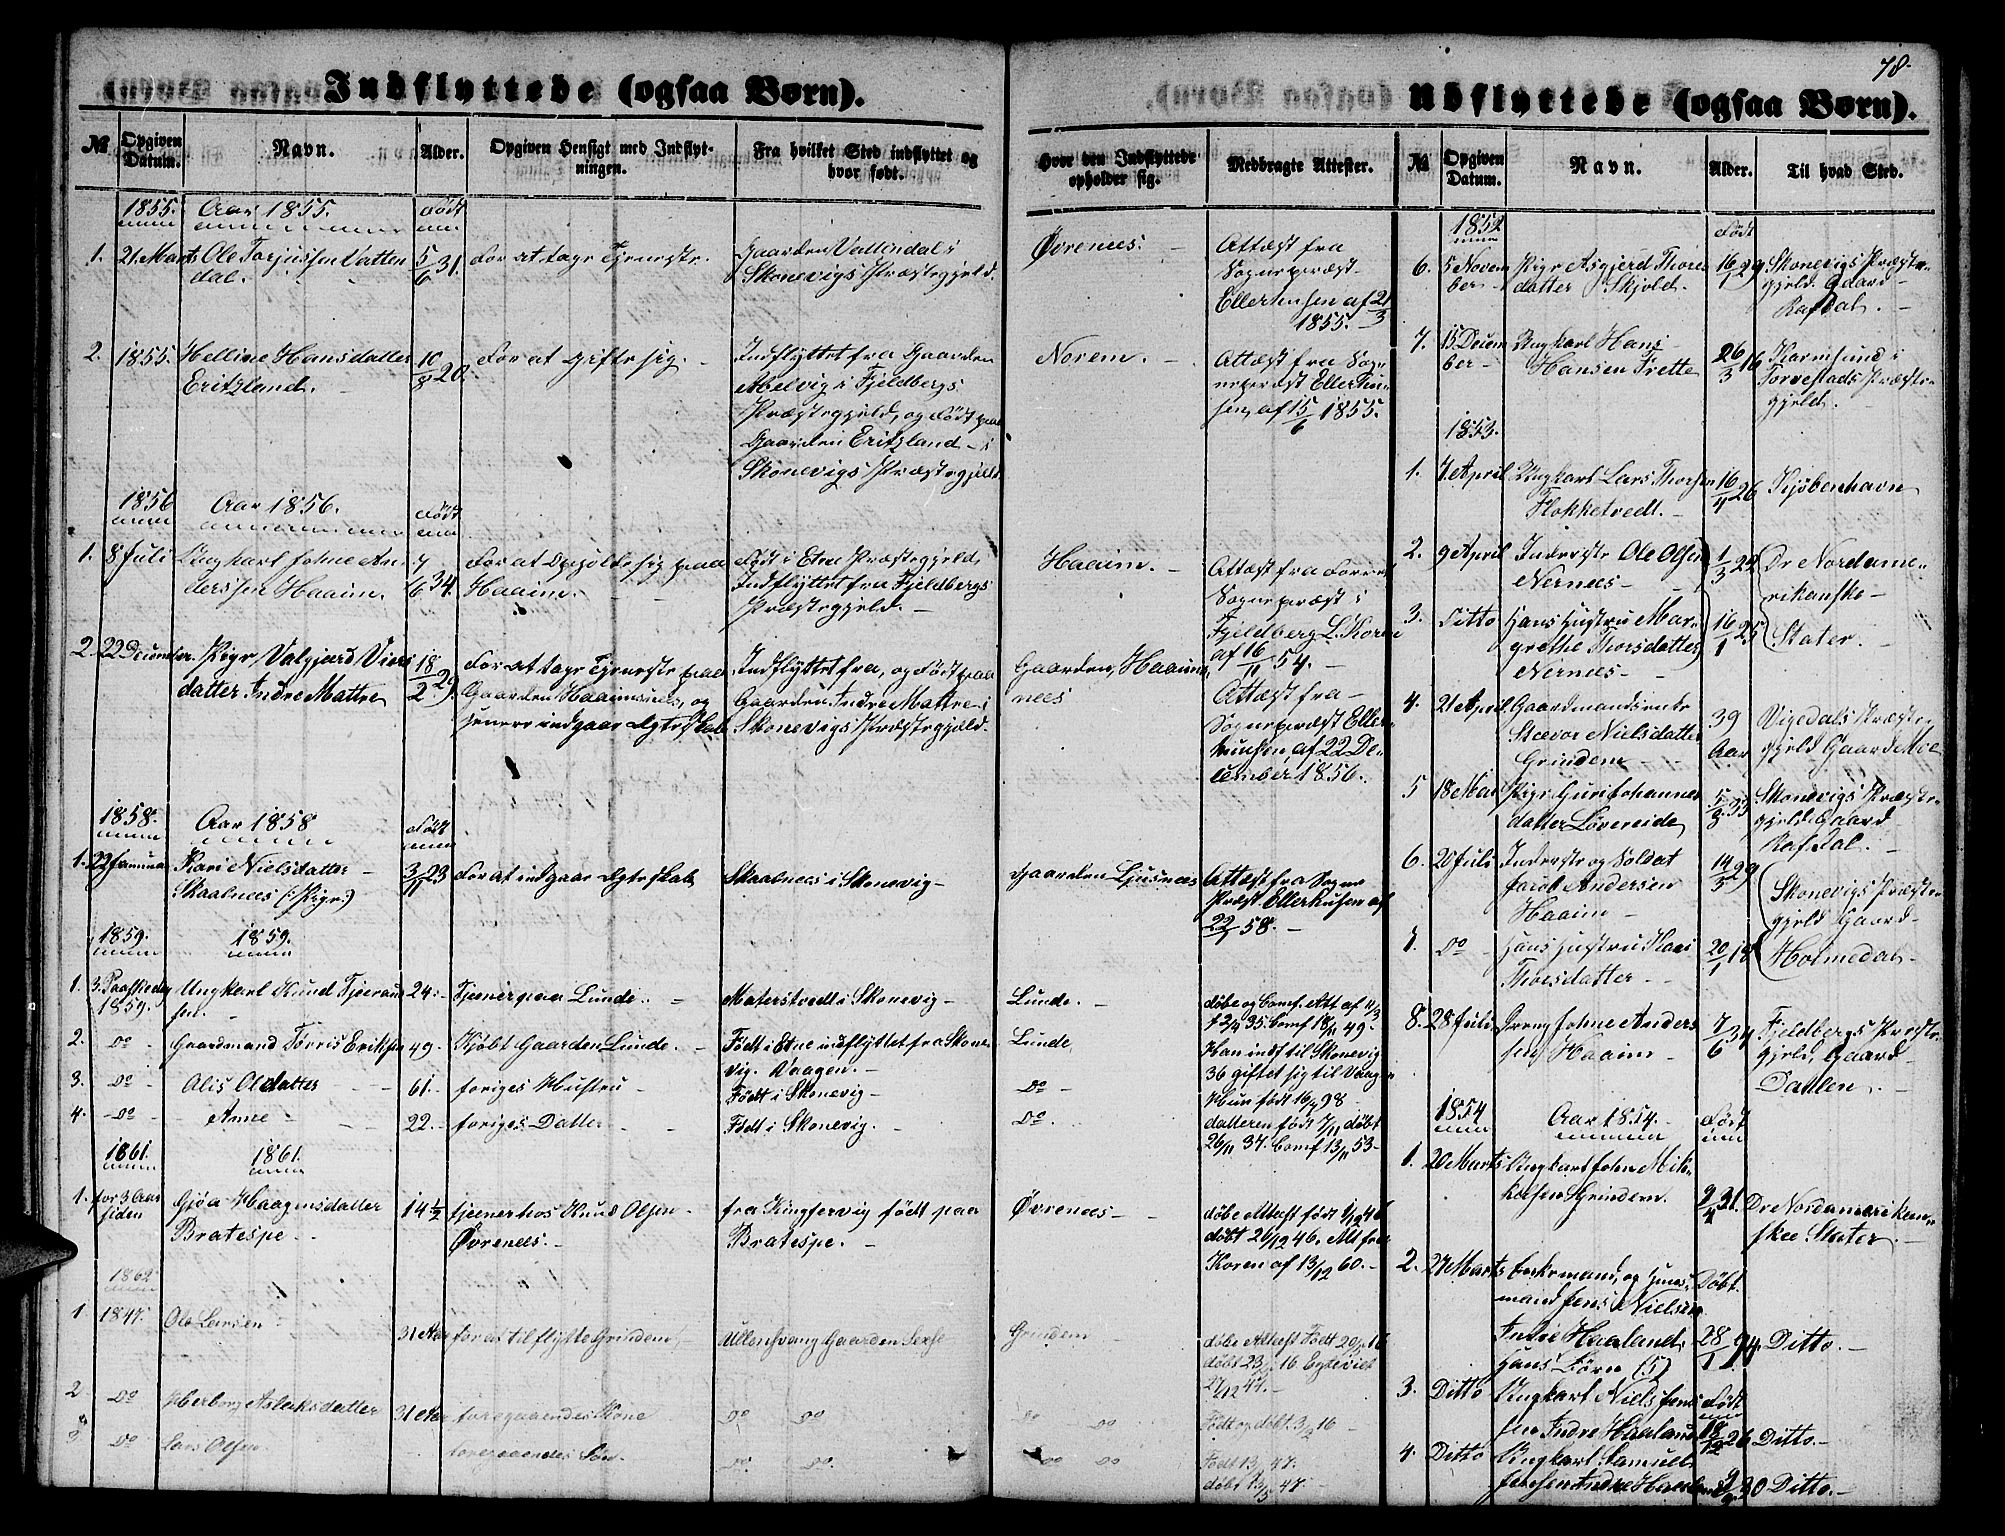 78.
Indflyttede (ogsaa Børn).
№
Opgiven Datum.
Navn.
Alder.
Opgiven Hensigt med Indflyt-
ningen.
Fra hvilket Sted indflyttet og
hvor født.
Hvor den Indflyttede
opholder sig.
Medbragte Attester.
1855. Aar 1855. Født
1. 21 Marts Ole Torjussen Vatten
dal.
5/6 31.
For at tage Tjeneste.
Gaarden Vattendal i
Skonevigs Præstegjeld.
Øvrenees.
Attest fra
Sognepræst
Ellerhusen af 21/3
1855.
2. 1855. Helline Hansdatter
Eritzland.
10/8 20.
For at gifte sig.
Indflyttet fra Gaarden
Mælvig i Fjeldbergs
Præstegjeld, og Født paa
Gaarden Eritzland i
Skonevigs Præstegjeld.
Norem.
Attest fra Sog-
nepræst Ellerhu-
sen af 15/6 1855.
1856 Aar 1856. Født
1. 8 Juli Ungkarl Johne An
derssen Haaim.
7/6 34.
For at Opholde sig paa
Haaim.
Født i Etne Præstegjeld,
Indflyttet fra Fjeldbergs
Præstegjeld.
Haaim.
Attest fra
Sognepræst i
Fjeldberg L. Koren
af 16/11 54.
2. 22 December. Pige Valgjerd
datter Indre Mattre
18/2 29.
For at tage Tjeneste paa
Gaarden Haaimnees, og
senere indgaae Ægteskab
Indflyttet fra, og Født paa
Gaarden Indre Mattre i
Skonevigs Præstegjeld.
Gaarden Haaim
nees
Attest fra
Sognepræst Eller
husen af 22 De-
cember 1856.
1858. Aar 1858 Født
1. 22 Januar Kari Nielsdatter
Skaalnees (: Pige:)
3/11 23
For at indgaae Ægteskab,
Skaalnees i Skonevig
Gaarden Ljusnees
Attest fra Sogne
Præst Ellerhusen af
22/1 58.
1859. 1859.
1. 3 Paaskedag
1859.
Ungkarl Knud
sen.
24.
Tjener paa Lunde.
Materstvedt i Skonevig
Lunde.
døbe og Comf. Att af 11/3
2/11 35 Comf 18/11 49.
2. Do Gaardmand Torris Eriksen 49. Kjøbt Gaarden Lunde.
Født i Etne indflyttet fra Skone
vig. Vaagen.
Lunde.
Han indf til Skonevig
36 giftet sig til Vaagen
3. Do Alis Oldatter 61. foriges Hustru
Født i Skonevig
Do
født 16/ 98
4. Do Anne 22. foriges Datter
Født i Skonevig.
Do.
datteren født 7/11 døbt
26/11 37. Comf 13/11 53
1861. 1861.
1. for 3 Aar
siden
Gjøa Haagensdatter
Bratespe.
14½
tjener hos Knud Olsen
Øvrenees.
fra Kingservig født paa
Bratespe.
Øvrenees
døbe Attest født 1/12 46
døbt 26/12 46. Att fra
Koren af 13/12 60.
1862
1 1847. Ole Larsen
31 Aar for at tilflytte Grindem,
Ullensvang Gaarden Sexe
Grindem
døbe Attest Født 20/ 16
døbt 23/ 16
27/12 47.
2 Do Herborg Aslaksdatter
31 Aar foregaaendes Kone
Do Do
Do Do
Født og døbt 3/ 16
3 Do Lars Olsen
foregaaendes Søn.
Do. Do.
Do Do
Født 13/ 47.
døbt 13/5 47.
Udflyttede (ogsaa Børn).
№
Opgiven Datum.
Navn.
Alder.
Til hvad Sted.
1852 Født
6. 5 Novem
ber
Pige Asgjerd Thores
datter Skjold.
16/1 29
Skonevigs Præste-
gjeld. Gaard
Rafdal.
7. 15 Decem
ber
Ungkarl Hans
Hansen Trette
26/3 16
Karmsund i
Torvestads Præste-
gjeld.
1853.
1. 7 April Ungkarl Lars Thorsen
Flokketvedt.
16/4 26
Kjøbenhavn
2. 9 April Inderste Ole Olsen
Nernees
1/3 22
De Nordame-
rikanske
Stater.
3. Ditto Hans Hustru Mar-
grethe Thorsdatter
Nernees
16/1 25
4. 21 April Gaardmandsenke
Stævor Nielsdatter
Grindem
39
Aar
Vigedals Præste
gjeld Gaard Moe
5 18 Mai Pige Guri Johannes
datter Løvereide
5/8 33
Skonevigs Præste-
gjeld. Gaard
Rafdal.
6. 20 Juli Inderste og Soldat
Jacob Andersen
Haaim
14/3 29
Skonevigs Præste-
gjeld Gaard
Holmedal
7. Do Hans Hustru Kari
Thorsdatter
20/1 18
8. 28 Juli Dreng Johne Anders
sen Haaim
7/6 34
Fjeldbergs Præste-
gjeld, Gaard
Dahlen.
1854 Aar 1854. Født
1. 20 Marts Ungkarl John Mik-
kelsen Grindem.
9/4 31.
De Nordamerikan-
ske Stater.
2. 27 Marts Enkemand, og Huus-
mand Jens Nielsen
Indre Haaland.
Hans Børn (5)
Døbt
28/1 94.
Ditto.
3. Ditto Ungkarl Niels Jens
sen Indre Haaland
Født
18/12 26
Ditto.
4. Ditto Ungkarl Samuel
Jensen Indre Haaland
30
Ditto.